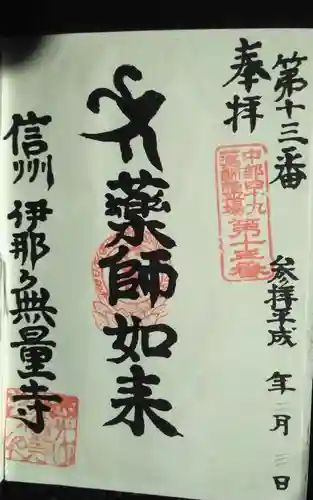 第十三番
奉拝
参拝平成 年 月 日
中部四十九
薬師霊場
第十三番
薬師如来
信州 伊那々無量寺